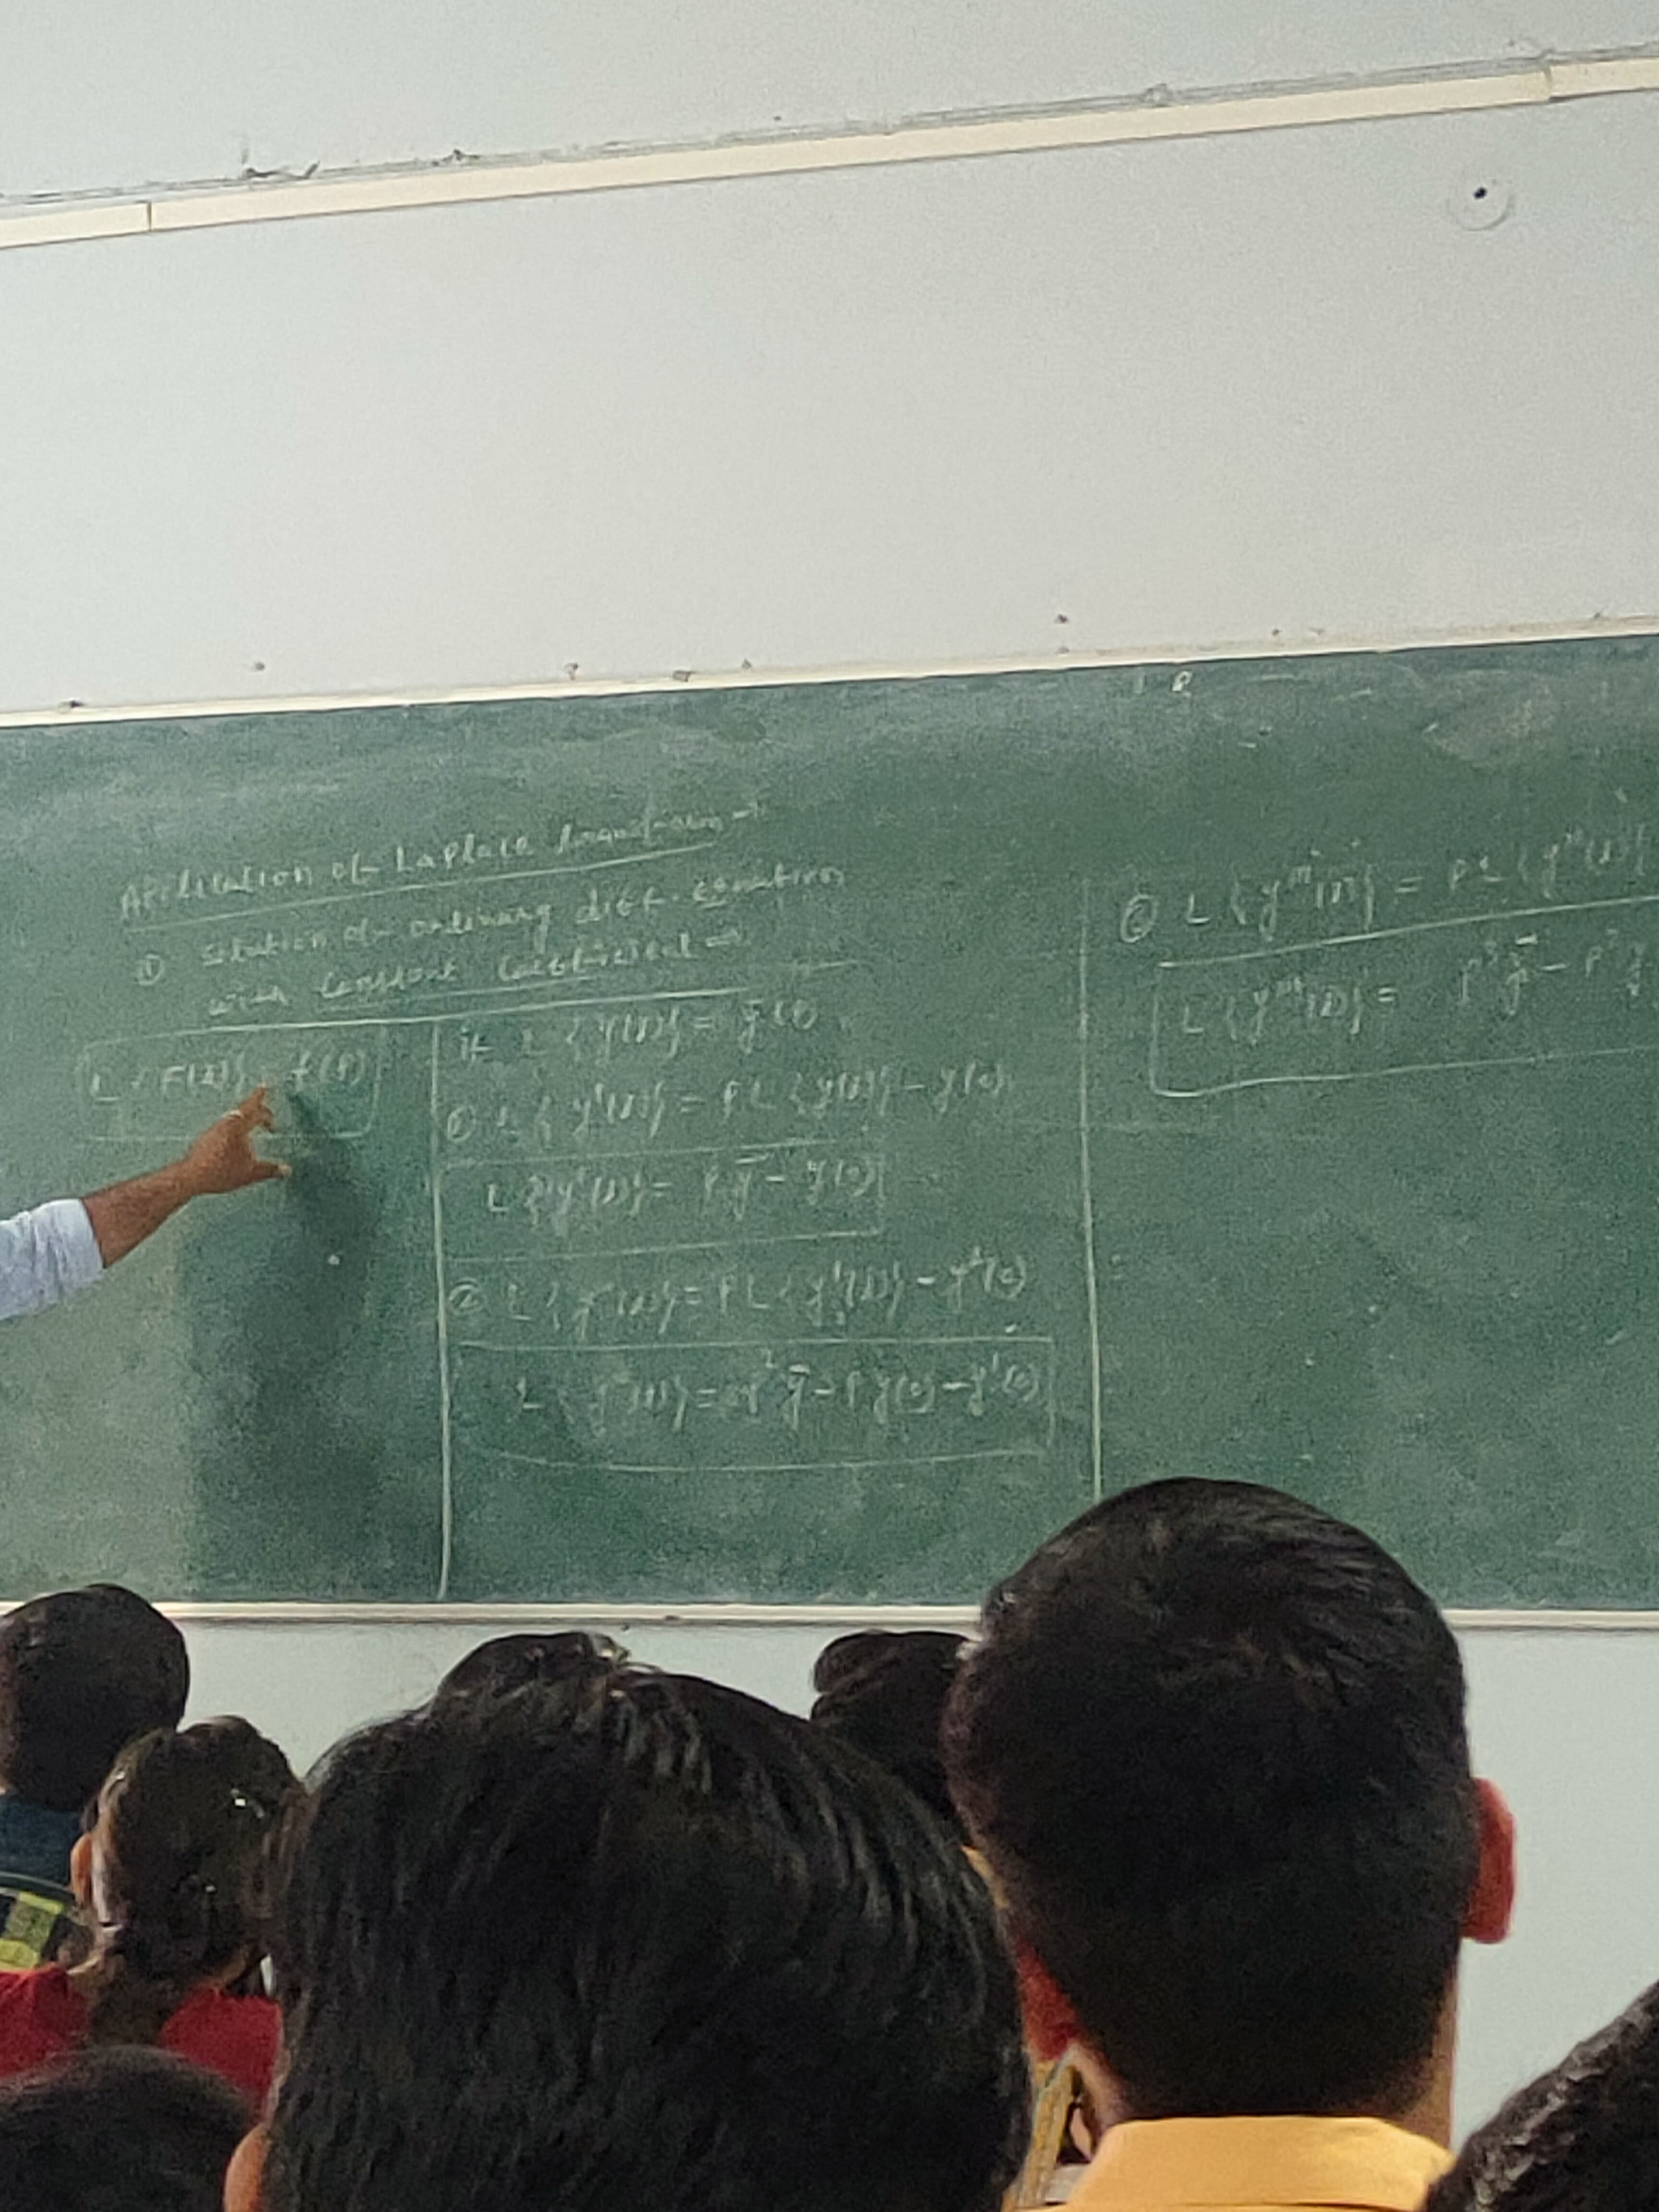 Application of Laplace transform →
① solution of ordinary diff. equation
with constant coefficient →
L {F(t)} = f(p)
if L {y(t)} = ȳ(p)
① L { y'(t)} = p L {y(t)} - y(0)
L {y'(t)} = p ȳ - y(0)
② L { y''(t)} = p L {y'(t)} - y'(0)
L { y''(t)} = p² ȳ - p y(0) - y'(0)
L {y'''(t)} = p L {y''(t)}
L {y'''(t)} = p³ ȳ - p² y